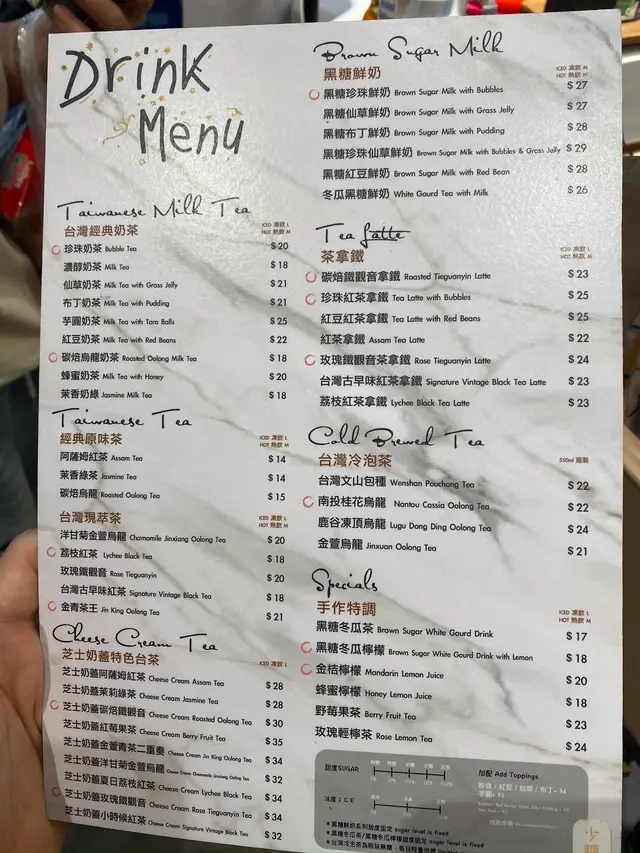 Drink
Menu
Taiwanese Milk Tea
台灣經典奶茶
ICED 凍飲 L
HOT 熱飲 M
珍珠奶茶 Bubble Tea $ 20
濃醇奶茶 Milk Tea $ 18
仙草奶茶 Milk Tea with Grass Jelly $ 21
布丁奶茶 Milk Tea with Pudding $ 21
芋圓奶茶 Milk Tea with Taro Balls $ 25
紅豆奶茶 Milk Tea with Red Beans $ 22
碳焙烏龍奶茶 Roasted Oolong Milk Tea $ 18
蜂蜜奶茶 Milk Tea with Honey $ 20
茉香奶綠 Jasmine Milk Tea $ 18
Taiwanese Tea
經典原味茶
ICED 凍飲 L
HOT 熱飲 M
阿薩姆紅茶 Assam Tea $ 14
茉香綠茶 Jasmine Tea $ 14
碳焙烏龍 Roasted Oolong Tea $ 15
台灣現萃茶
ICED 凍飲 L
HOT 熱飲 M
洋甘菊金萱烏龍 Chamomile Jinxiang Oolong Tea $ 20
荔枝紅茶 Lychee Black Tea $ 18
玫瑰鐵觀音 Rose Tieguanyin $ 20
台灣古早味紅茶 Signature Vintage Black Tea $ 18
金青茶王 Jin King Oolong Tea $ 21
Cheese Cream Tea
芝士奶蓋特色台茶
ICED 凍飲 L
芝士奶蓋阿薩姆紅茶 Cheese Cream Assam Tea $ 28
芝士奶蓋茉莉綠茶 Cheese Cream Jasmine Tea $ 28
芝士奶蓋碳焙鐵觀音 Cheese Cream Roasted Oolong Tea $ 30
芝士奶蓋紅莓果茶 Cheese Cream Berry Fruit Tea $ 35
芝士奶蓋金萱青茶二重奏 Cheese Cream Jin King Oolong Tea $ 34
芝士奶蓋洋甘菊金萱烏龍 Cheese Cream Chamomile Jinxiang Oolong Tea $ 32
芝士奶蓋夏日荔枝紅茶 Cheese Cream Lychee Black Tea $ 34
芝士奶蓋玫瑰鐵觀音 Cheese Cream Rose Tieguanyin Tea $ 34
芝士奶蓋小時候紅茶 Cheese Cream Signature Vintage Black Tea $ 32
Brown Sugar Milk
黑糖鮮奶
ICED 凍飲 M
HOT 熱飲 M
黑糖珍珠鮮奶 Brown Sugar Milk with Bubbles $ 27
黑糖仙草鮮奶 Brown Sugar Milk with Grass Jelly $ 27
黑糖布丁鮮奶 Brown Sugar Milk with Pudding $ 28
黑糖珍珠仙草鮮奶 Brown Sugar Milk with Bubbles & Grass Jelly $ 29
黑糖紅豆鮮奶 Brown Sugar Milk with Red Bean $ 28
冬瓜黑糖鮮奶 White Gourd Tea with Milk $ 26
Tea Latte
茶拿鐵
ICED 凍飲 L
HOT 熱飲 M
碳焙鐵觀音拿鐵 Roasted Tieguanyin Latte $ 23
珍珠紅茶拿鐵 Tea Latte with Bubbles $ 25
紅豆紅茶拿鐵 Tea Latte with Red Beans $ 25
紅茶拿鐵 Assam Tea Latte $ 22
玫瑰鐵觀音茶拿鐵 Rose Tieguanyin Latte $ 24
台灣古早味紅茶拿鐵 Signature Vintage Black Tea Latte $ 23
荔枝紅茶拿鐵 Lychee Black Tea Latte $ 23
Cold Brewed Tea
台灣冷泡茶
550ml 瓶裝
台灣文山包種 Wenshan Pouchong Tea $ 22
南投桂花烏龍 Nantou Cassia Oolong Tea $ 22
鹿谷凍頂烏龍 Lugu Dong Ding Oolong Tea $ 24
金萱烏龍 Jinxuan Oolong Tea $ 21
Specials
手作特調
ICED 凍飲 L
HOT 熱飲 M
黑糖冬瓜茶 Brown Sugar White Gourd Drink $ 17
黑糖冬瓜檸檬 Brown Sugar White Gourd Drink with Lemon $ 18
金桔檸檬 Mandarin Lemon Juice $ 20
蜂蜜檸檬 Honey Lemon Juice $ 18
野莓果茶 Berry Fruit Tea $ 23
玫瑰輕檸茶 Rose Lemon Tea $ 24
甜度SUGAR
冰度ICE
加配 Add Toppings
珍珠 / 紅豆 / 仙草 / 布丁+ $4
芋圓+ $5
*黑糖鮮奶系列甜度固定 sugar level is fixed
*黑糖冬瓜茶/黑糖冬瓜檸檬甜度固定 sugar level is fixed
少糖